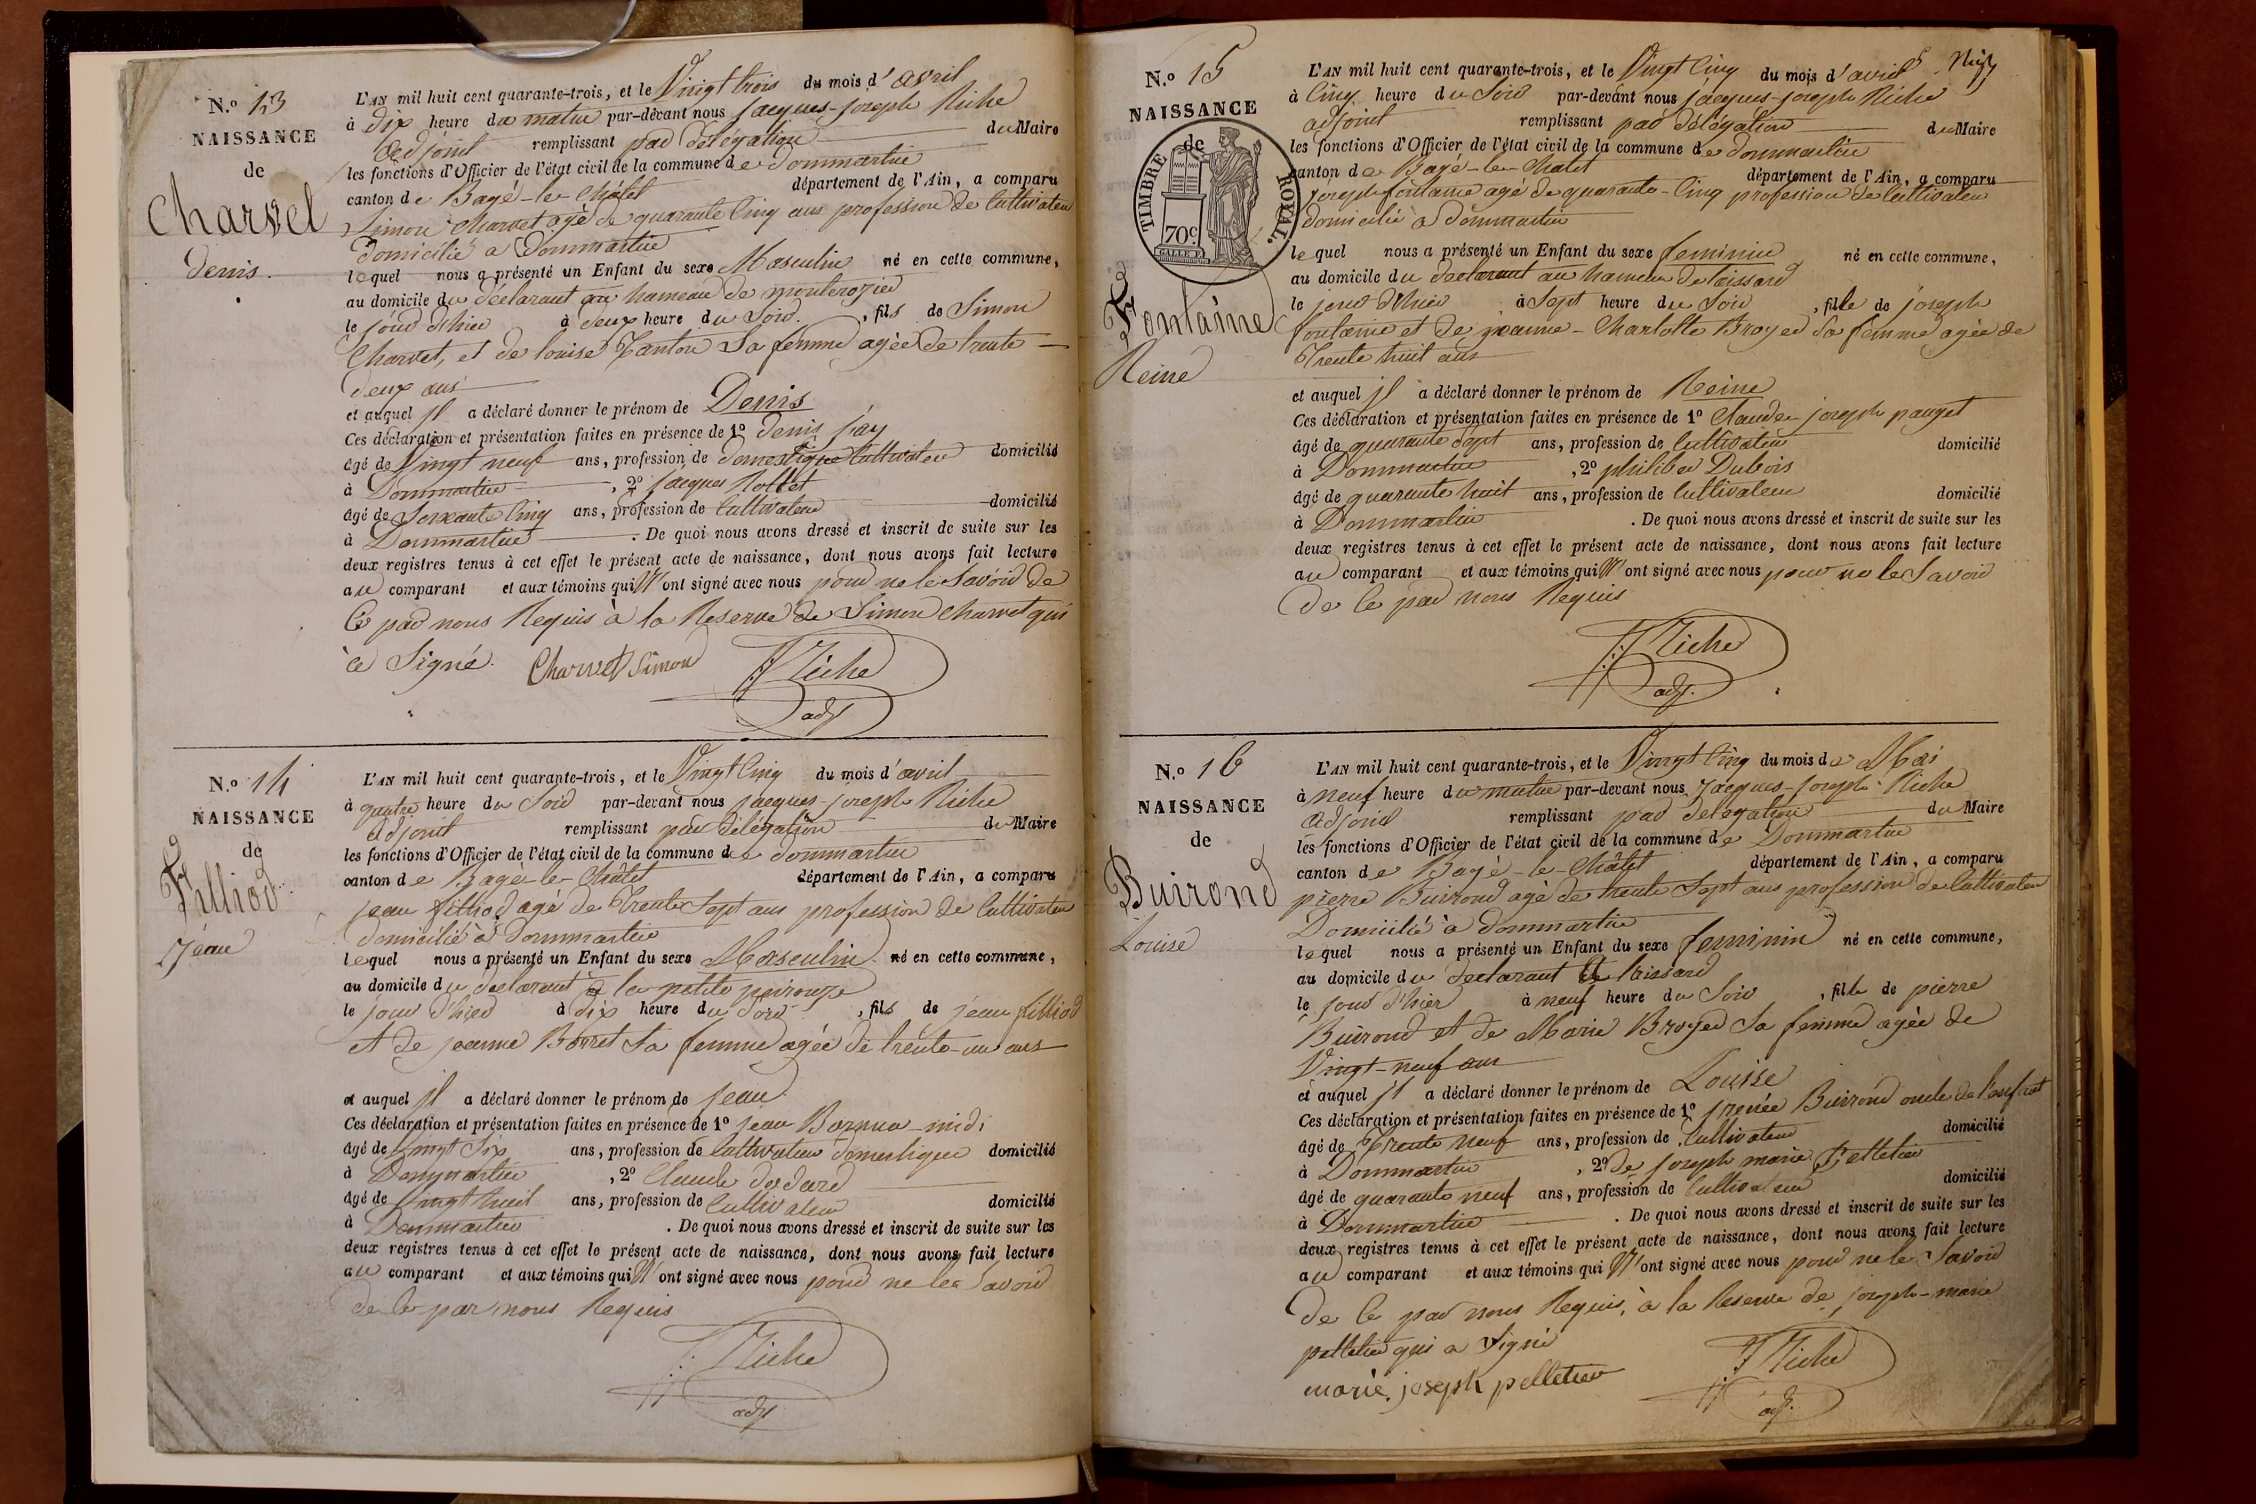 N.º 13
NAISSANCE
de
Charvet
denis.
L'AN mil huit cent quarante-trois, et le Vingt trois du mois d'avril
à dix heure du matin par-devant nous jacques-joseph Riche
adjoint remplissant par délégation du Maire
les fonctions d'Officier de l'état civil de la commune de dommartin
canton de Bagé-le-Châtel département de l'Ain, a comparu
Simon Charvet agé de quarante cinq ans profession de Cultivateur
domicilié a Dommartin
lequel nous a présenté un Enfant du sexe Masculin né en cette commune,
au domicile du déclarant au hameau de
le jour d'hier à deux heure du Soir, fils de Simon
Charvet, et de louise Tanton Sa femme agée de trente
deux ans
et auquel jl a déclaré donner le prénom de Denis
Ces déclaration et présentation faites en présence de 1º denis jay
âgé de Vingt neuf ans, profession de domestique Cultivateur domicilié
à Dommartin, 2º jacques
âgé de Soixante Cinq ans, profession de Cultivateur domicilié
à Dommartin. De quoi nous avons dressé et inscrit de suite sur les
deux registres tenus à cet effet le présent acte de naissance, dont nous avons fait lecture
au comparant et aux témoins qui N'ont signé avec nous pour ne le Savoir de
Ce par nous Requis à la Reserve de Simon Charvet qui
a Signé. Charvet Simon JJ Riche
adj
N.º 14
NAISSANCE
de
Filliod
Jean
L'AN mil huit cent quarante-trois, et le Vingt Cinq du mois d'avril
à quatre heure du Soir par-devant nous jacques-joseph Riche
adjoint remplissant par délégation du Maire
les fonctions d'Officier de l'état civil de la commune de dommartin
canton de Bagé-le-Châtel département de l'Ain, a comparu
jean filliod agé de Trente Sept ans profession de Cultivateur
domicilié à Dommartin
lequel nous a présenté un Enfant du sexe Masculin né en cette commune,
au domicile du déclarant à la petite
le jour d'hier à dix heure du Soir, fils de jean filliod
et de jeanne Borret Sa femme agée de trente-un ans
et auquel jl a déclaré donner le prénom de jean
Ces déclaration et présentation faites en présence de 1º jean
âgé de Vingt Six ans, profession de Cultivateur domestique domicilié
à Dommartin, 2º Claude
âgé de Vingt huit ans, profession de Cultivateur domicilié
à Dommartin. De quoi nous avons dressé et inscrit de suite sur les
deux registres tenus à cet effet le présent acte de naissance, dont nous avons fait lecture
au comparant et aux témoins qui N'ont signé avec nous pour ne le Savoir
de Ce par nous Requis
JJ Riche
adj
N.º 15
NAISSANCE
de
TIMBRE ROYAL.
70 c
Fontaine
Reine
L'AN mil huit cent quarante-trois, et le Vingt Cinq du mois d'avril
à Cinq heure du Soir par-devant nous jacques-joseph Riche
adjoint remplissant par délégation du Maire
les fonctions d'Officier de l'état civil de la commune de dommartin
canton de Bagé-le-Chatel département de l'Ain, a comparu
joseph fontaine agé de quarante-Cinq profession de Cultivateur
domicilié à dommartin
lequel nous a présenté un Enfant du sexe feminin né en cette commune,
au domicile du declarant au hameau de loissard
le jour d'hier à Sept heure du Soir, fille de joseph
fontaine et de jeanne-Charlotte Broyer Sa femme agée de
Trente huit ans
et auquel jl a déclaré donner le prénom de Reine
Ces déclaration et présentation faites en présence de 1º Claude-joseph pauget
âgé de quarante Sept ans, profession de Cultivateur domicilié
à Dommartin, 2º philiber Dubois
âgé de quarante huit ans, profession de Cultivateur domicilié
à Dommartin. De quoi nous avons dressé et inscrit de suite sur les
deux registres tenus à cet effet le présent acte de naissance, dont nous avons fait lecture
au comparant et aux témoins qui N'ont signé avec nous pour ne le Savoir
de Ce par nous Requis
JJ Riche
adj.
N.º 16
NAISSANCE
de
Buirond
Louise
L'AN mil huit cent quarante-trois, et le Vingt Cinq du mois de Mai
à neuf heure du matin par-devant nous Jacques-Joseph Riche
adjoint remplissant par délégation du Maire
les fonctions d'Officier de l'état civil de la commune de Dommartin
canton de Bagé-le-Châtel département de l'Ain, a comparu
pierre Buirond agé de trente Sept ans profession de Cultivateur
Domicilié à dommartin
lequel nous a présenté un Enfant du sexe feminin né en cette commune,
au domicile du declarant
le jour d'hier à neuf heure du Soir, fille de pierre
Buirond et de Marie Broyer Sa femme agée de
Vingt-neuf ans
et auquel jl a déclaré donner le prénom de Louise
Ces déclaration et présentation faites en présence de 1º jrenée Buirond oncle de l'enfant
âgé de Trente neuf ans, profession de Cultivateur domicilié
à Dommartin, 2º de joseph marie Pelletier
âgé de quarante neuf ans, profession de Cultivateur domicilié
à Dommartin. De quoi nous avons dressé et inscrit de suite sur les
deux registres tenus à cet effet le présent acte de naissance, dont nous avons fait lecture
au comparant et aux témoins qui N'ont signé avec nous pour ne le Savoir
de Ce par nous Requis, à la Reserve de joseph-marie
pelletier qui a Signé
marie joseph pelletier JJ Riche
adj.